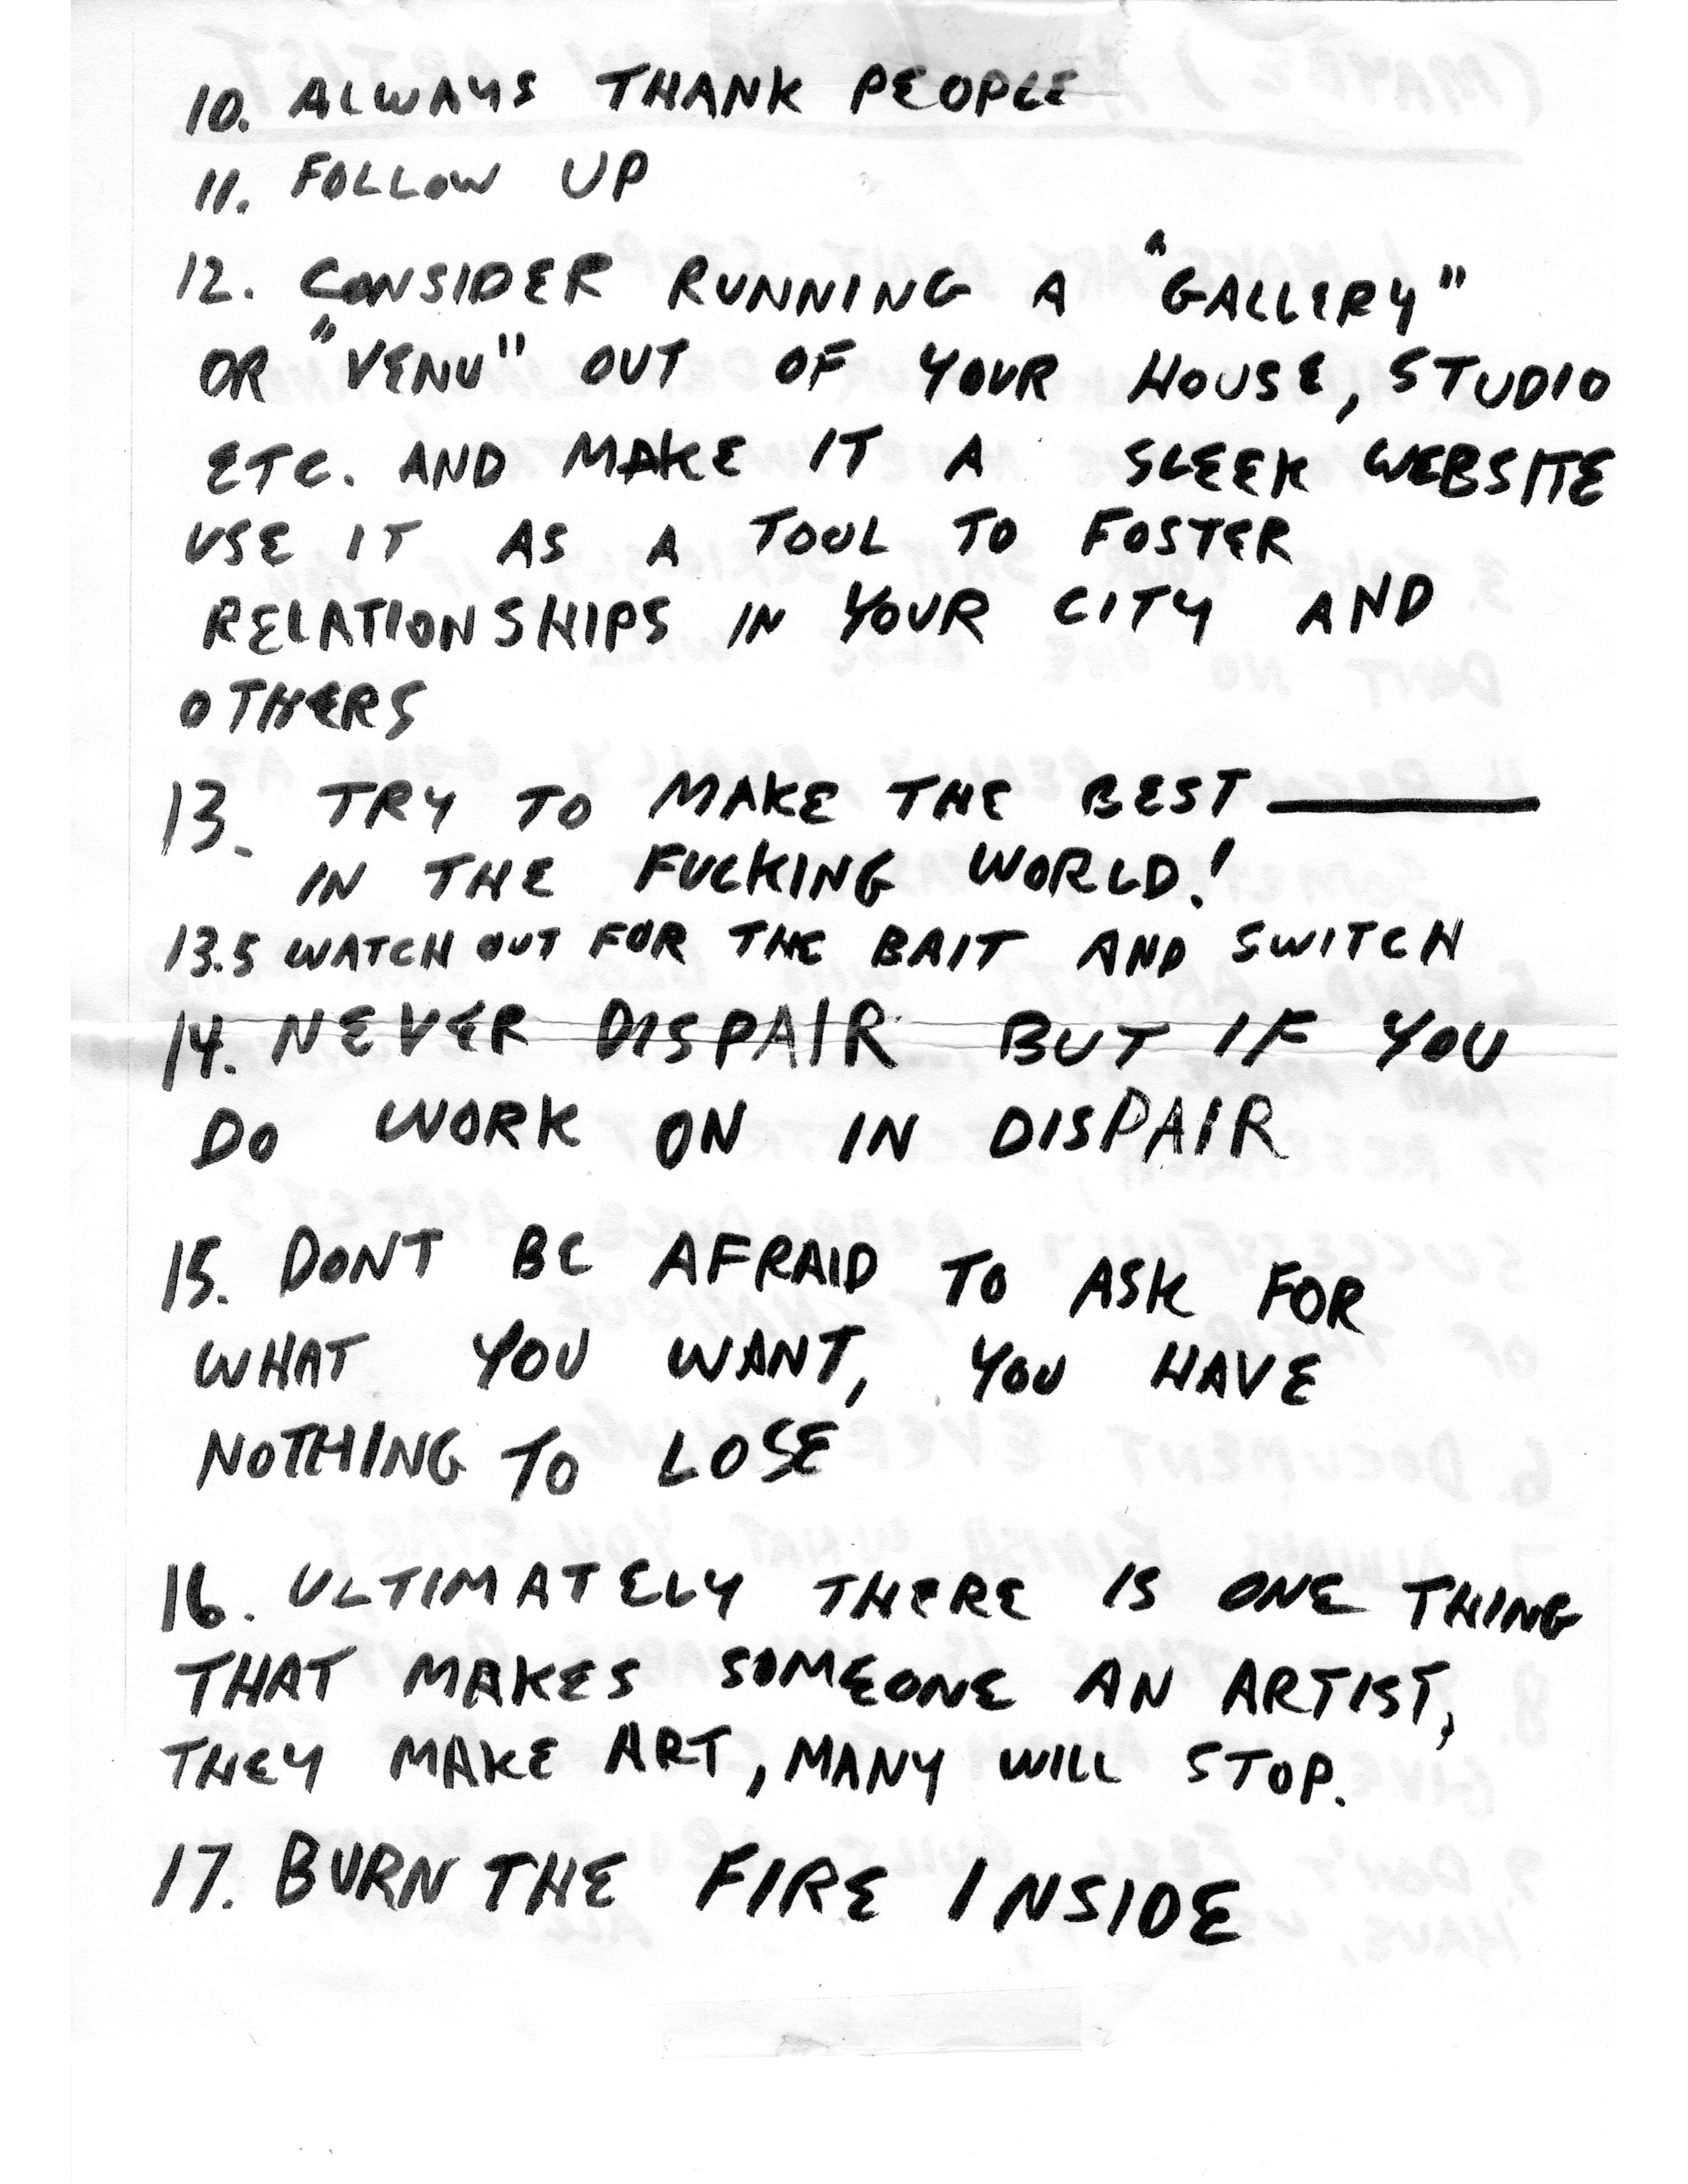 10. ALWAYS THANK PEOPLE
11. FOLLOW UP
12. CONSIDER RUNNING A "GALLERY"
OR "VENU" OUT OF YOUR HOUSE, STUDIO
ETC. AND MAKE IT A SLEEK WEBSITE
USE IT AS A TOOL TO FOSTER
RELATIONSHIPS IN YOUR CITY AND
OTHERS
13. TRY TO MAKE THE BEST ———
IN THE FUCKING WORLD!
13.5 WATCH OUT FOR THE BAIT AND SWITCH
14. NEVER DISPAIR BUT IF YOU
DO WORK ON IN DISPAIR
15. DONT BE AFRAID TO ASK FOR
WHAT YOU WANT, YOU HAVE
NOTHING TO LOSE
16. ULTIMATELY THERE IS ONE THING
THAT MAKES SOMEONE AN ARTIST,
THEY MAKE ART, MANY WILL STOP.
17. BURN THE FIRE INSIDE